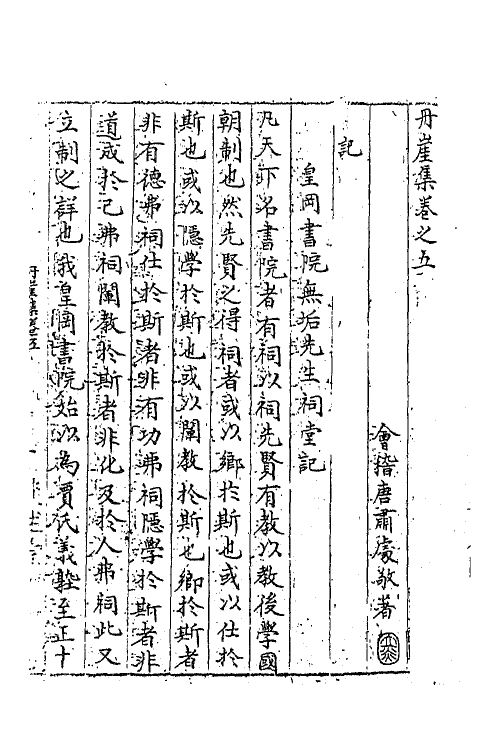 丹崖集卷之五
會稽唐肅處敬著
記
皇岡書院無垢先生祠堂記
凡天下名書院者有祠以祠先賢有教以教後學國
朝制也然先賢之得祠者或以鄉於斯也或以仕於
斯也或以隱學於斯也或以闡教於斯也鄉於斯者
非有德弗祠仕於斯者非有功弗祠隱學於斯者非
道成於己弗祠闡教於斯者非化及於人弗祠此又
立制之詳也我皇岡書院始以為賈氏義塾至正十
丹崖集卷五